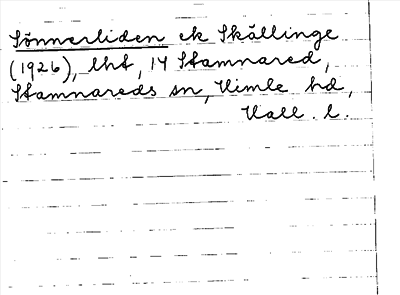 Sönnerliden ek Skällinge
(1926), lht, 14 Stamnared,
Stamnareds sn, Himle hd,
Hall. l.